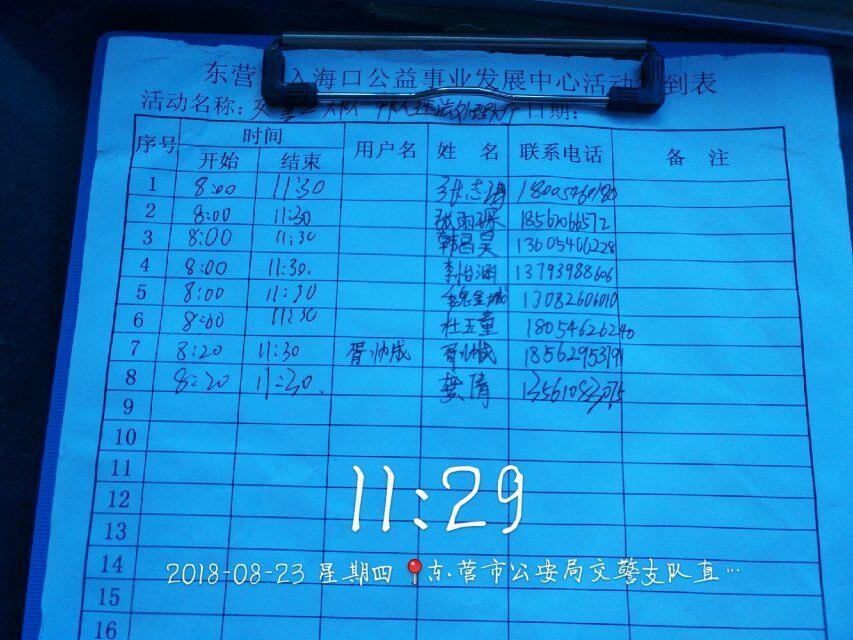 东营 入海口公益事业发展中心活动 到表
活动名称: 日期:
序号 时间 用户名 姓 名 联系电话 备 注
开始 结束
1 8:00 11:30 张志涛
2 8:00 11:30 张雨琛 18562066572
3 8:00 11:30 韩昌昊 13605466228
4 8:00 11:30. 李怡涵 13793988606
5 8:00 11:30 13082606010
6 8:00 11:30 杜玉童 18054626240
7 8:20 11:30 胥帅成 胥帅成 18562953791
8 8:20 11:30. 倩
9
10
11
12
13
14
15
16
11:29
2018-08-23 星期四 东营市公安局交警支队直…